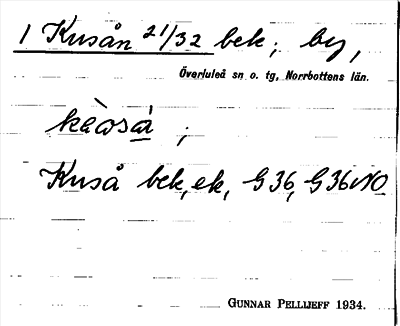 1 Kusån 21/32 bek; by,
Överluleå sn o. tg, Norrbottens län.
;
Kuså bek, ek, G36, G36NO
GUNNAR PELLIJEFF 1934.